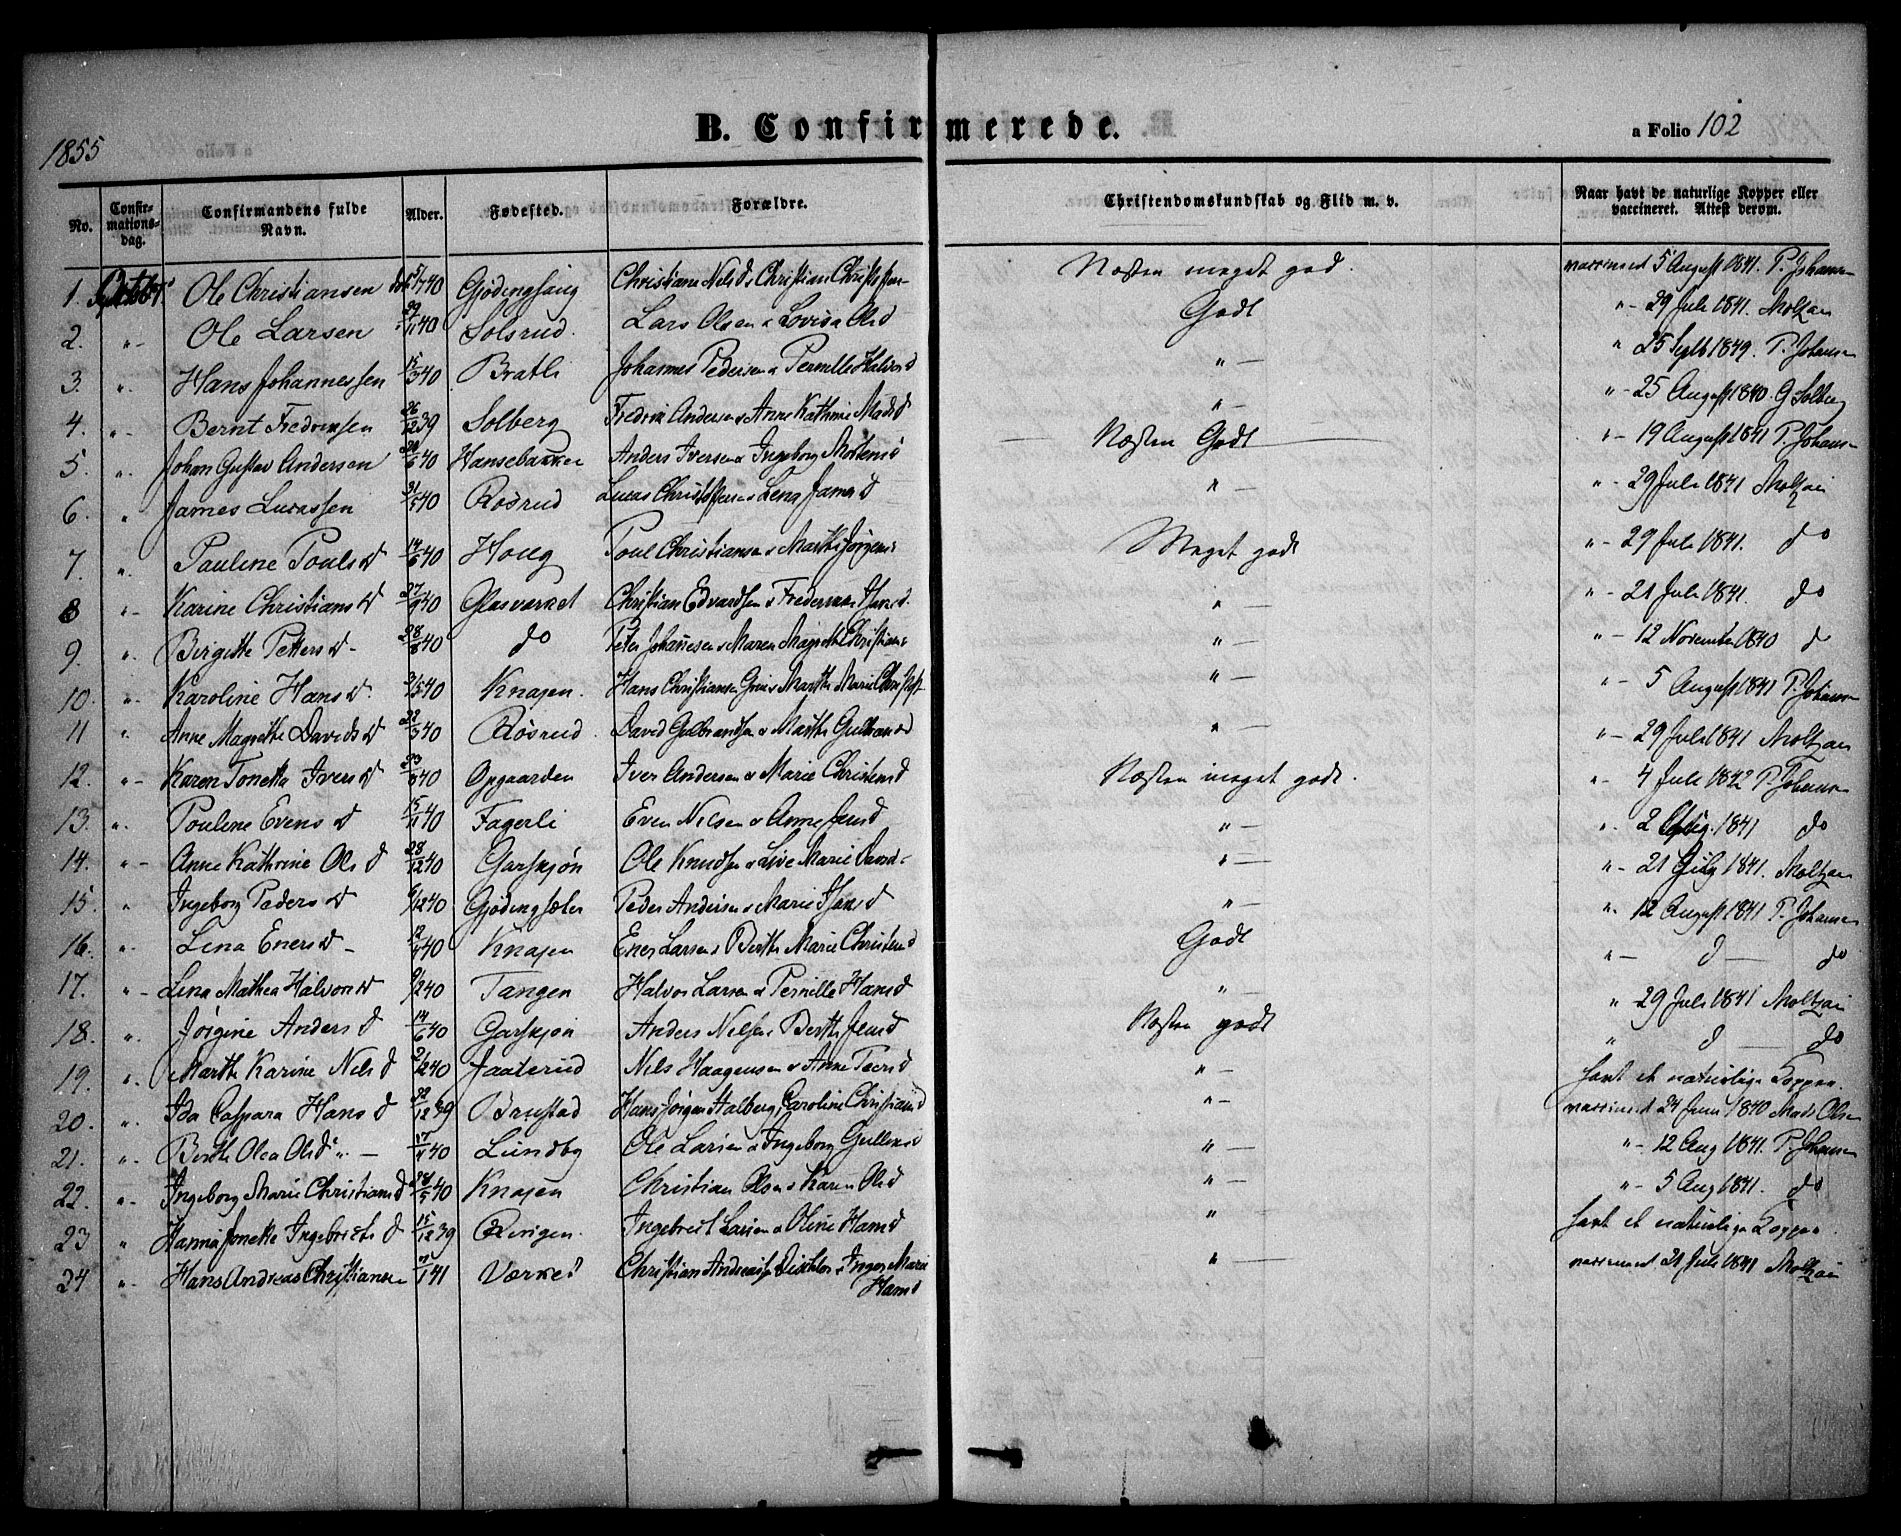 1855
B. Confirmerede.
a Folio 102
No. Confirmations-dag. Confirmandens fulde Navn. Alder. Fødested. Forældre. Christendomskundskab og Flid m. v. Naar havt de naturlige Kopper eller vaccineret. Attest derom.
1. Ole Christiansen 5/7 40 Christiane Nelsd & Christian Christoffersen Næsten meget god. vaccineret 5 August 1841. P. Johansen
2. "- Ole Larsen 29/11 40 Solsrud. Lars Olsen & Lovisa Olsd Godt "- 29 Juli 1841. Moltzau
3. " Hans Johannessen 15/3 40 Bratli Johannes Pedersen & Pernille Halvorsd "- " 25 Septb 1849. P. Johansen
4. "- Bernt Fredriksen 26/12 39 Solberg Fredrik Andersen & Anne Kathrine Madsd "- "- 25 August 1840. G Solberg
5. " Johan Gustav Andersen 40 Hansebakken Anders Iversen & Ingeborg Mortensd Næsten Godt "- 19 August 1841 P. Johansen
6. " James Lucassen 31/5 40 Rösrud Lucas Christoffersen & Lena Jamesd "- "- 29 Juli 1841 Moltzau
7. " Pauline Pouls D 14/6 40 Houg Poul Christiansen & Marthe Jörgens Meget godt "- 29 Juli 1841. do
8 "- Karine Christians D 27/9 40 Glasværket Christian Edvardsen & Hansd. "- "- 21 Juli 1841. do
9. " Birgitte Petters D - 28/8 40 do Peter Johannesen & Maren Magrethe Christians "- "- 12 November 1840 d
10. "- Karoline Hans D. 3/5 40 Knajen. Hans Christiansen & Marthe Marie Christ "- "- 5 August 1841 P. Johansen
11 " Anne Magrethe Davids D 22/3 40 Rösrud. David Gulbrandsen & Marthe Gulbrandsd "- "- 29 Juli 1841 Moltzau
12. "- Karen Tonetta Ivers D 40 Opgaarden Iver Andersen & Marie Christensd Næsten meget godt. "- 4 Juli 1842 P. Johansen
13. " Pouline Evens D 15/11 40 Fagerli Even Nilsen & Anne "- " 2 Aug. 1841 do
14. "- Anne Kathrine Ols D 28/12 40 Garsjøn Ole Knudsen & Live Marie David "- "- 21 July 1841. Moltzau
15. " Ingeborg Peders D 6/12 40 Peder Andersen & Marie Hansd "- " 12 August 1841 P. Johansen
16. " Lina Eners D - 12/4 40 Knajen Ener Larsen & Berthe Marie Christensd Godt "- d - do
17. "- Lina Mathea Halvors D 9/2 40 Tangen Halvor Larsen & Pernille Hansd "- " 29 Juli 1841 Moltzau
18. " Jørgine Anders D 14/6 40 Garsjøn Anders Nilsen & Berthe Jensd Næsten godt " d - do
19. " Marthe Karine Nels D 2/2 40 Jaaterud Nils Haagensen & Anne "- havt de naturlige Kopper.
20. " Ida Caspara Hans D 22/12 39 Brustad Hans Jörgen Halberg, Caroline Christiansd "- vaccineret 24 Juni 1840 Mads Olsen
21. " Berthe Olea Olsd "- 17/4 40 Lundby Ole Larsen & Ingeborg "- "- 12 Aug 1841. P. Johansen
22. "- Ingeborg Marie Christians D 28/5 40 Knajen Christian Olsen & Karen Olsd "- "- 5 Aug 1841. do
23 " Hanna Jonetta Ingebrets D 15/12 39 Ringen. Ingebret Larsen & Oline Hansd " havt de naturlige Kopper.
24 " Hans Andreas Christiansen 1 41 Værket Christian Andreassen & Inger Marie Hansd "- vaccineret 21 Juli 1841 Moltzau